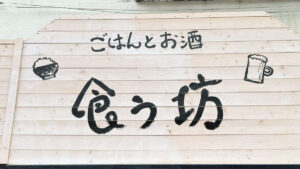 ごはんとお酒
食う坊